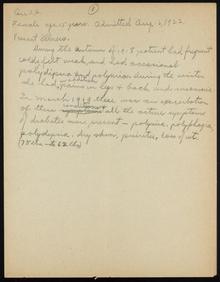 Case 28.
1
Female age 15 years. Admitted Aug. 6, 1922.
Present Illness.
During the autumn of 1918 patient had frequent
colds, felt weak, and had occasional
polydipsia and polyuria. During the winter
she had pains in legs & back and
In March 1919 there was an exacerbation
of these symptoms & all the active symptoms
of diabetes were present – polyuria, polyphagia,
polydipsia, dry skin, pruritus, loss of wt.
(75 lbs – to 62 lbs)